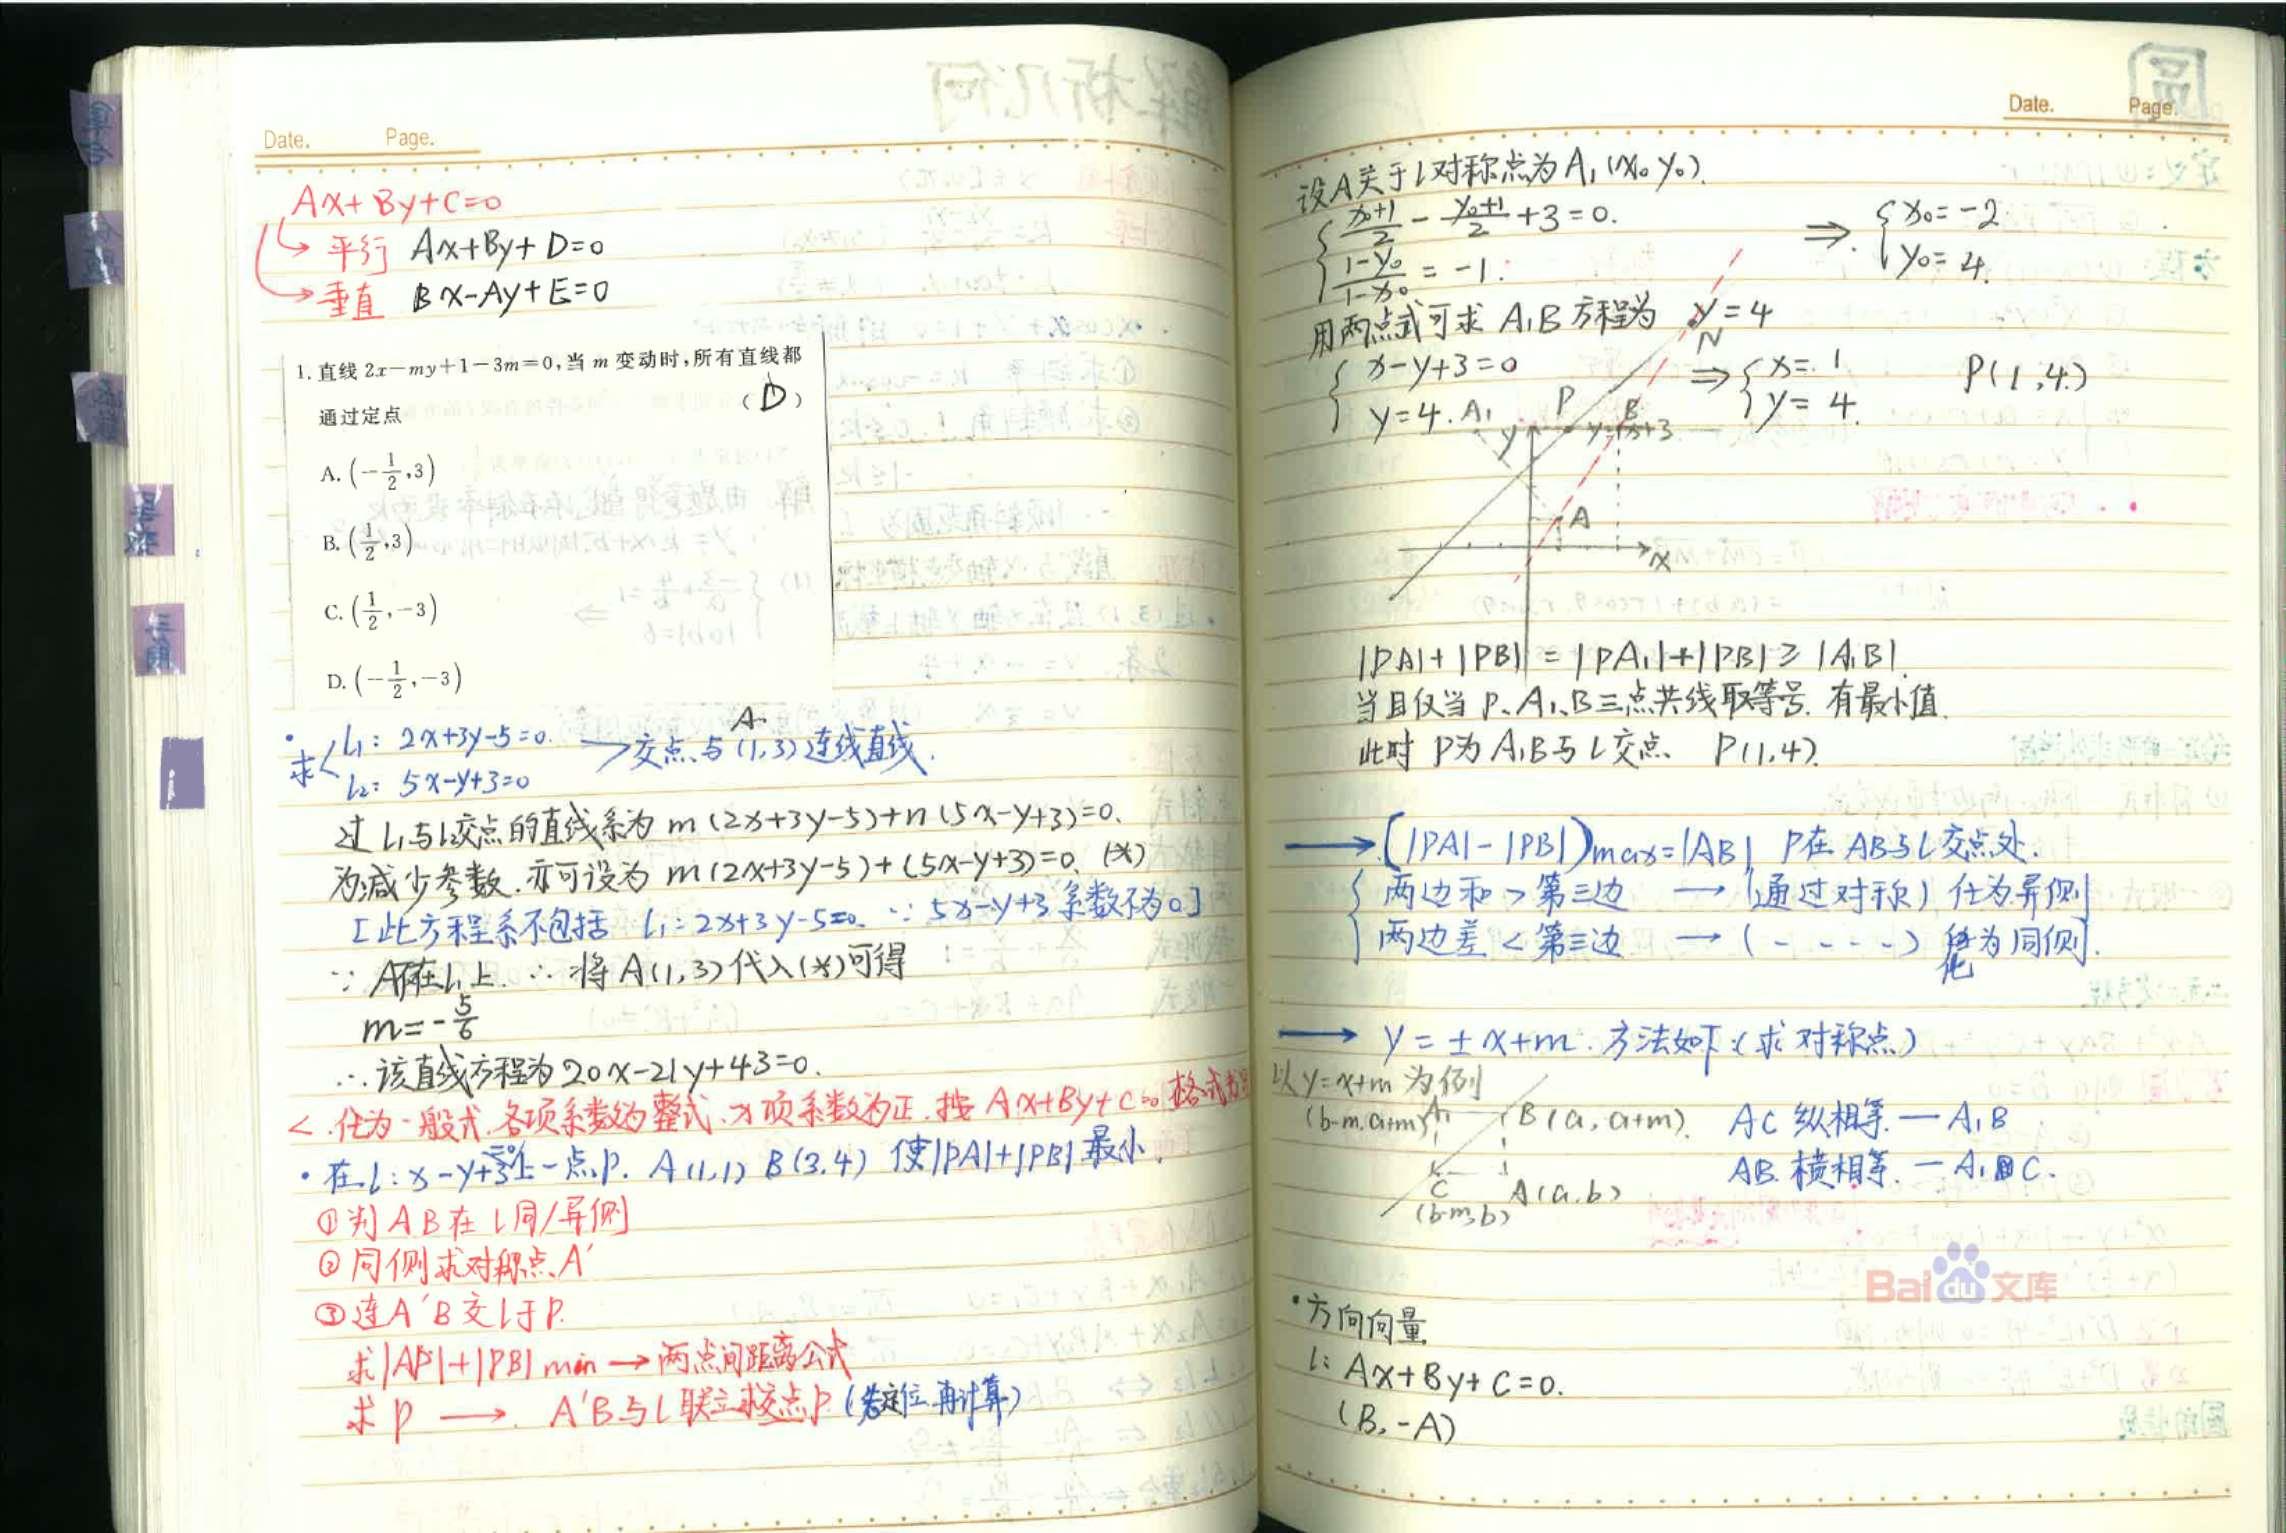 Date. Page.
Ax+By+C=0
平行 Ax+By+D=0
垂直 Bx-Ay+E=0
1. 直线 2x-my+1-3m=0,当 m 变动时,所有直线都
通过定点 (D)
A. (-1/2,3)
B. (1/2,3)
C. (1/2,-3)
D. (-1/2,-3)
A.
·求 l₁: 2x+3y-5=0. 交点与(1,3)连线直线.
l₂: 5x-y+3=0
过l₁与l₂交点的直线系为 m(2x+3y-5)+n(5x-y+3)=0.
为减少参数.亦可设为 m(2x+3y-5)+(5x-y+3)=0. (*)
[此方程系不包括 l₁: 2x+3y-5=0. ∵ 5x-y+3系数不为0]
∵ A不在l₁上. ∴ 将A(1,3)代入(*)可得
m=-5/6
∴ 该直线方程为 20x-21y+43=0.
<.化为一般式.各项系数为整式.x项系数为正.按 Ax+By+C=0 格式
·在l: x-y+3=0上一点P. A(1,1) B(3,4) 使|PA|+|PB|最小.
①判AB在l同/异侧
②同侧求对称点A'
③连A'B交l于P.
求|AP|+|PB|min→两点间距离公式
求P → A'B与l联立求交点P.(先定位.再计算)
Date. Page.
设A关于l对称点为A₁(x₀ y₀).
{(x₀+1)/2 - (y₀+1)/2 +3=0. ⇒ {x₀=-2
(1-y₀)/(1-x₀) = -1. y₀=4.
用两点式可求 A₁B方程为 y=4
N
{x-y+3=0 ⇒ {x=1 P(1,4)
y=4. y=4.
A₁ P B
y y=x+3
A
x
|PA|+|PB|=|PA₁|+|PB|≥|A₁B|.
当且仅当 P、A₁、B三点共线取等号.有最小值.
此时 P为A₁B与l交点. P(1,4).
→(|PA|-|PB|)max=|AB| P在AB与l交点处.
{两边和>第三边 →(通过对称)化为异侧
两边差<第三边 →(- - - -)化为同侧.
→ y=±x+m. 方法如下(求对称点)
以y=x+m为例
(b-m,a+m)A₁ B(a,a+m). AC 纵相等.—A₁B
AB.横相等.—A₁C.
C A(a.b)
(b-m,b)
Baidu文库
·方向向量
l: Ax+By+C=0.
(B,-A)